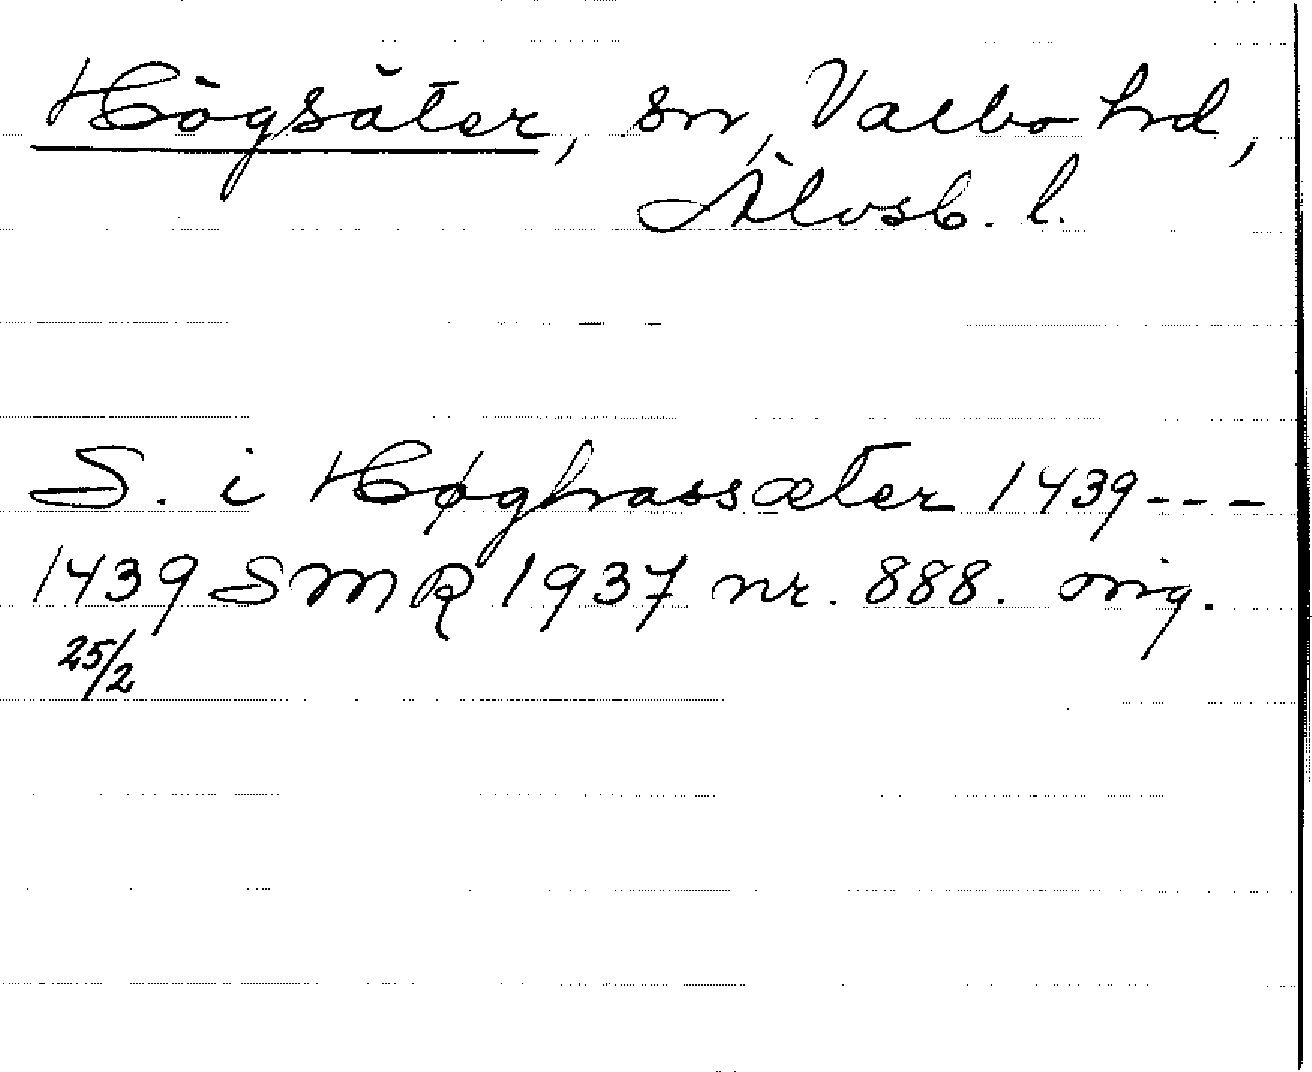 Högsäter, sn, Valbo hd,
Älvsb. l.
S. i Høghrassæter 1439---
1439 SMR 1937 nr. 888. orig.
25/2